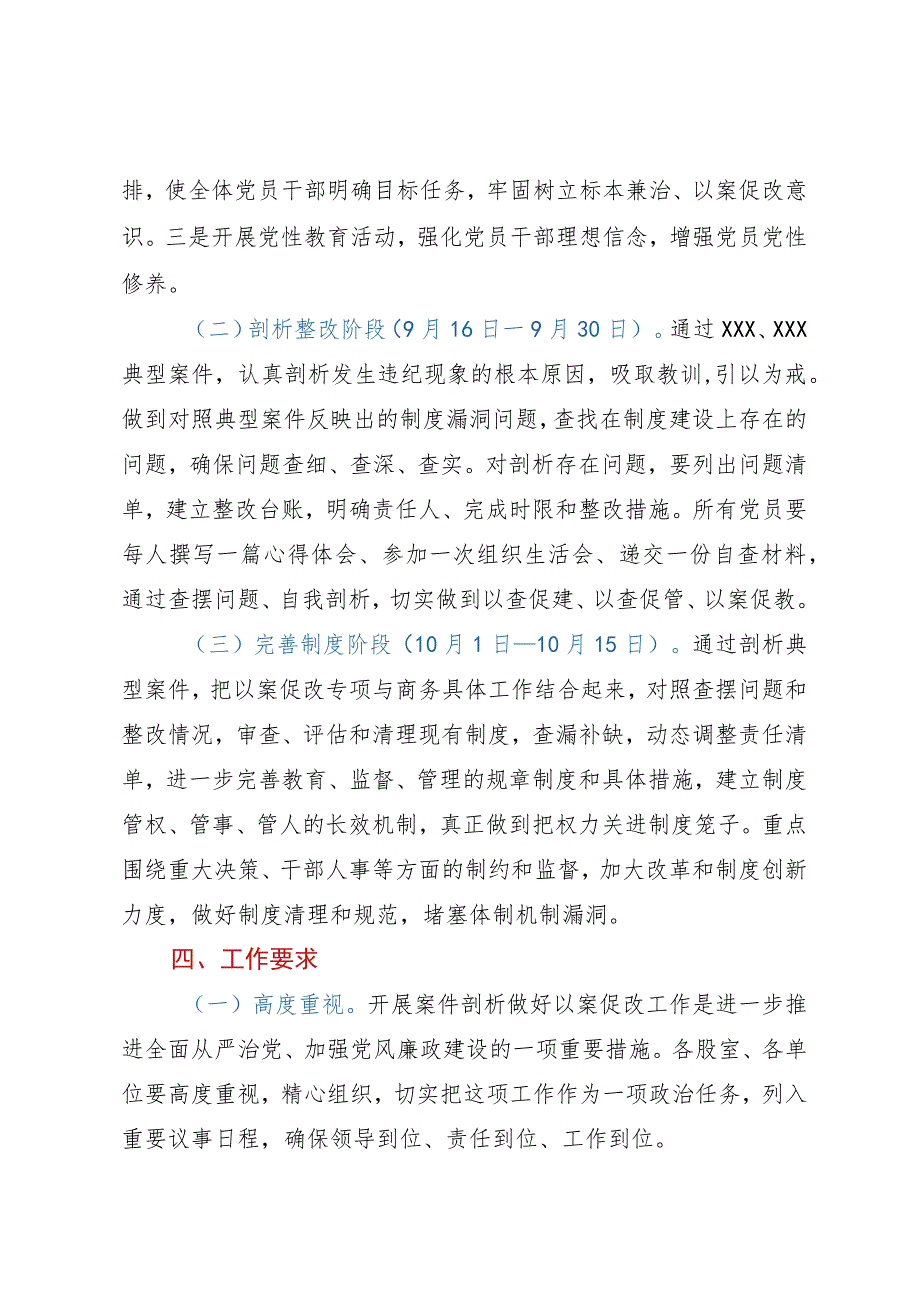 排，使全体党员干部明确目标任务，牢固树立标本兼治、以案促改意
识。三是开展党性教育活动，强化党员干部理想信念，增强党员党性
修养。
（二）剖析整改阶段（9月16日一9月30日）。通过XXX、XXX
典型案件，认真剖析发生违纪现象的根本原因，吸取教训,引以为戒。
做到对照典型案件反映出的制度漏洞问题，查找在制度建设上存在的
问题，确保问题查细、查深、查实。对剖析存在问题，要列出问题清
单，建立整改台账，明确责任人、完成时限和整改措施。所有党员要
每人撰写一篇心得体会、参加一次组织生活会、递交一份自查材料，
通过查摆问题、自我剖析，切实做到以查促建、以查促管、以案促教。
（三）完善制度阶段（10月1日—10月15日）。通过剖析典
型案件，把以案促改专项与商务具体工作结合起来，对照查摆问题和
整改情况，审查、评估和清理现有制度，查漏补缺，动态调整责任清
单，进一步完善教育、监督、管理的规章制度和具体措施，建立制度
管权、管事、管人的长效机制，真正做到把权力关进制度笼子。重点
围绕重大决策、干部人事等方面的制约和监督，加大改革和制度创新
力度，做好制度清理和规范，堵塞体制机制漏洞。
四、工作要求
（一）高度重视。开展案件剖析做好以案促改工作是进一步推
进全面从严治党、加强党风廉政建设的一项重要措施。各股室、各单
位要高度重视，精心组织，切实把这项工作作为一项政治任务，列入
重要议事日程，确保领导到位、责任到位、工作到位。